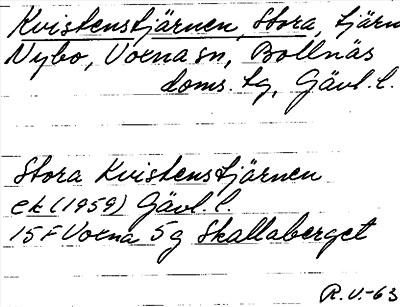 Kvistenstjärnen, Stora, tjärn
Nybo, Voxna sn, Bollnäs
doms. tg, Gävl. l.
Stora Kvistenstjärnen
ek (1959) Gävl l.
15 F Voxna 5 g Skallaberget
R.V.-63